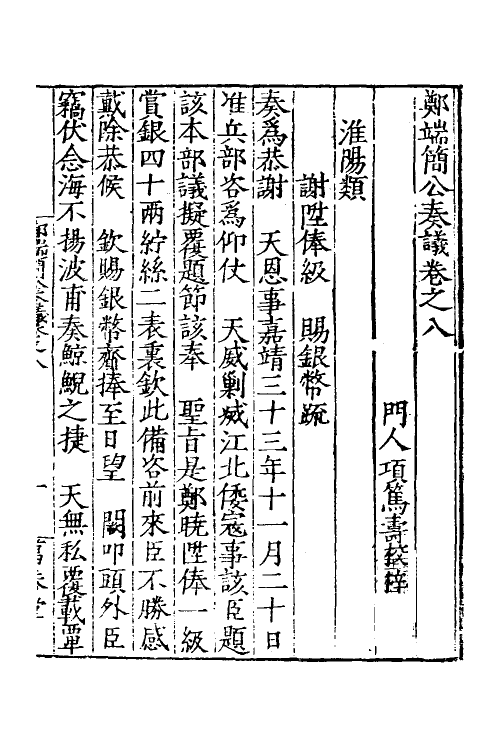 鄭端簡公奏議卷之八
門人項篤壽校梓
淮陽類
謝陞俸級　賜銀幣疏
奏爲恭謝　天恩事嘉靖三十三年十一月二十日
准兵部咨爲仰仗　天威剿滅江北倭寇事該臣題
該本部議擬覆題節該奉　聖旨是鄭曉陞俸一級
賞銀四十兩紵絲二表裏欽此備咨前來臣不勝感
戴除恭候　欽賜銀幣齎捧至日望　闕叩頭外臣
竊伏念海不揚波甫奏鯨鯢之捷　天無私覆載單
鄭端簡公奏議卷之八　一